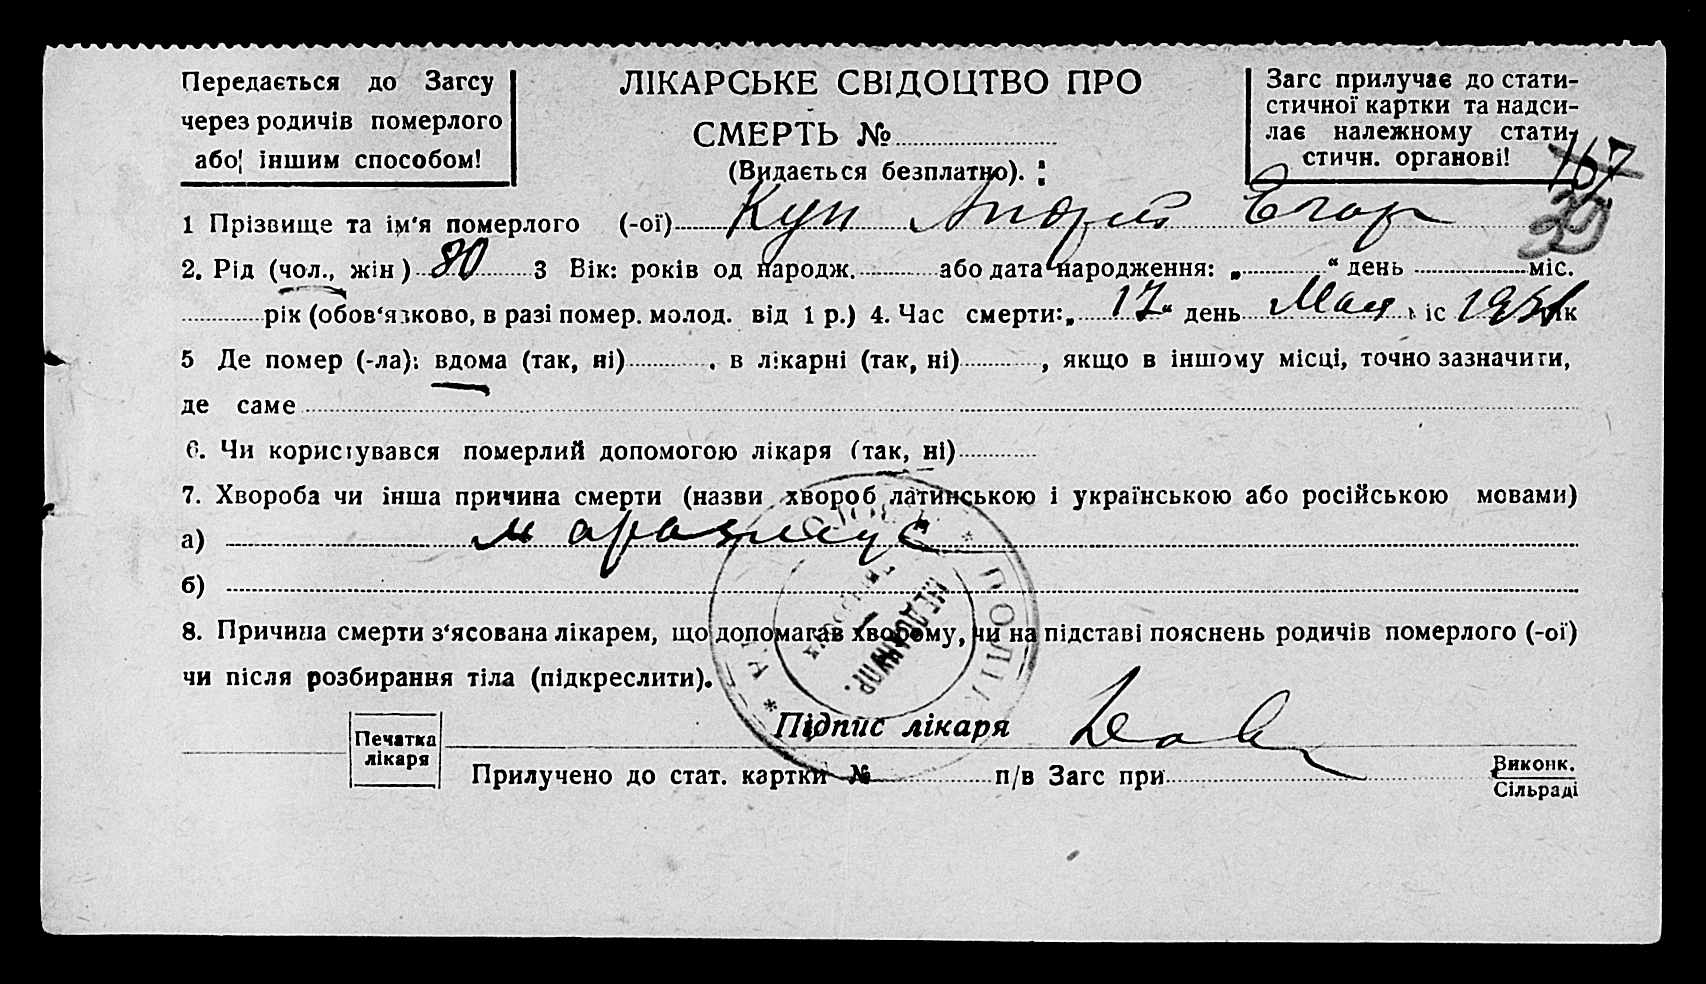 Передається до Загсу
через родичів померлого
або іншим способом!
ЛІКАРСЬКЕ СВІДОЦТВО ПРО
СМЕРТЬ №
(Видається безплатно).
Загс прилучає до стати-
стичної картки та надси-
лає належному стати-
стичн. органові!
167
39
1 Прізвище та ім'я померлого (-ої) Кун Андрей Егор
2. Рід (чол., жін) 80 3 Вік: років од народж. або дата народження: „ “ день міс.
рік (обов'язково, в разі помер. молод. від 1 р.) 4. Час смерти: „ 17 “ день Мая іс рік
5 Де помер (-ла): вдома (так, ні) , в лікарні (так, ні) , якщо в іншому місці, точно зазначити,
де саме
6. Чи користувався померлий допомогою лікаря (так, ні)
7. Хвороба чи інша причина смерти (назви хвороб латинською і українською або російською мовами)
а) маразмус
б)
8. Причина смерти з'ясована лікарем, що допомагав хворому, чи на підставі пояснень родичів померлого (-ої)
чи після розбирання тіла (підкреслити).
Підпис лікаря
Печатка
лікаря
Прилучено до стат. картки № п/в Загс при
Виконк.
Сільраді